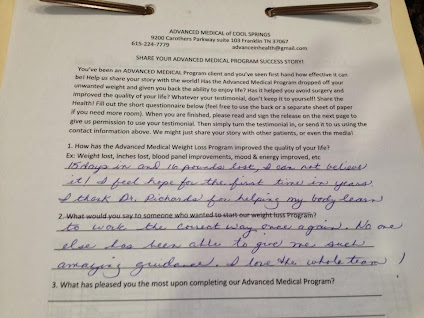 ADVANCED MEDICAL of COOL SPRINGS
9200 Carothers Parkway suite 103 Franklin TN 37067
615-224-7779 advanceinhealth@gmail.com
SHARE YOUR ADVANCED MEDICAL PROGRAM SUCCESS STORY!
You've been an ADVANCED MEDICAL Program client and you've seen first hand how effective it can
be! Help us share your story with the world! Has the Advanced Medical Program dropped off your
unwanted weight and given you back the ability to enjoy life? Has it helped you avoid surgery and
improved the quality of your life? Whatever your testimonial, don't keep it to yourself! Share the
Health! Fill out the short questionnaire below (feel free to use the back or a separate sheet of paper
if you need more room). When you are finished, please read and sign the release on the next page to
give us permission to use your testimonial. Then simply turn the testimonial in, or send it to us using the
contact information above. We might just share your story with other patients, or even the media!
1. How has the Advanced Medical Weight Loss Program improved the quality of your life?
Ex: Weight lost, inches lost, blood panel improvements, mood & energy improved, etc
15 days in and 16 pounds lost, I can not believe
it! I feel hope for the first time in years
I thank Dr. Richards for helping my body learn
2. What would you say to someone who wanted to start our weight loss Program?
to work the correct way once again. No one
else has been able to give me such
amazing guidance. I love the whole team!
3. What has pleased you the most upon completing our Advanced Medical Program?